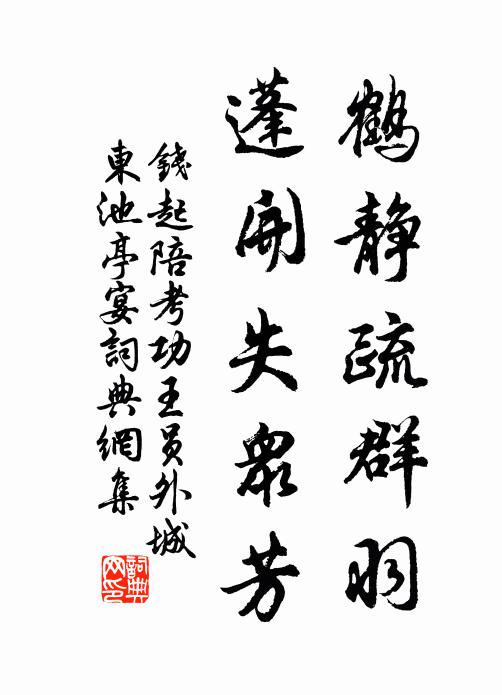 鶴靜疏群羽
蓬開失衆芳
錢起陪考功王员外城
東池亭宴詞典網集
詞典網印